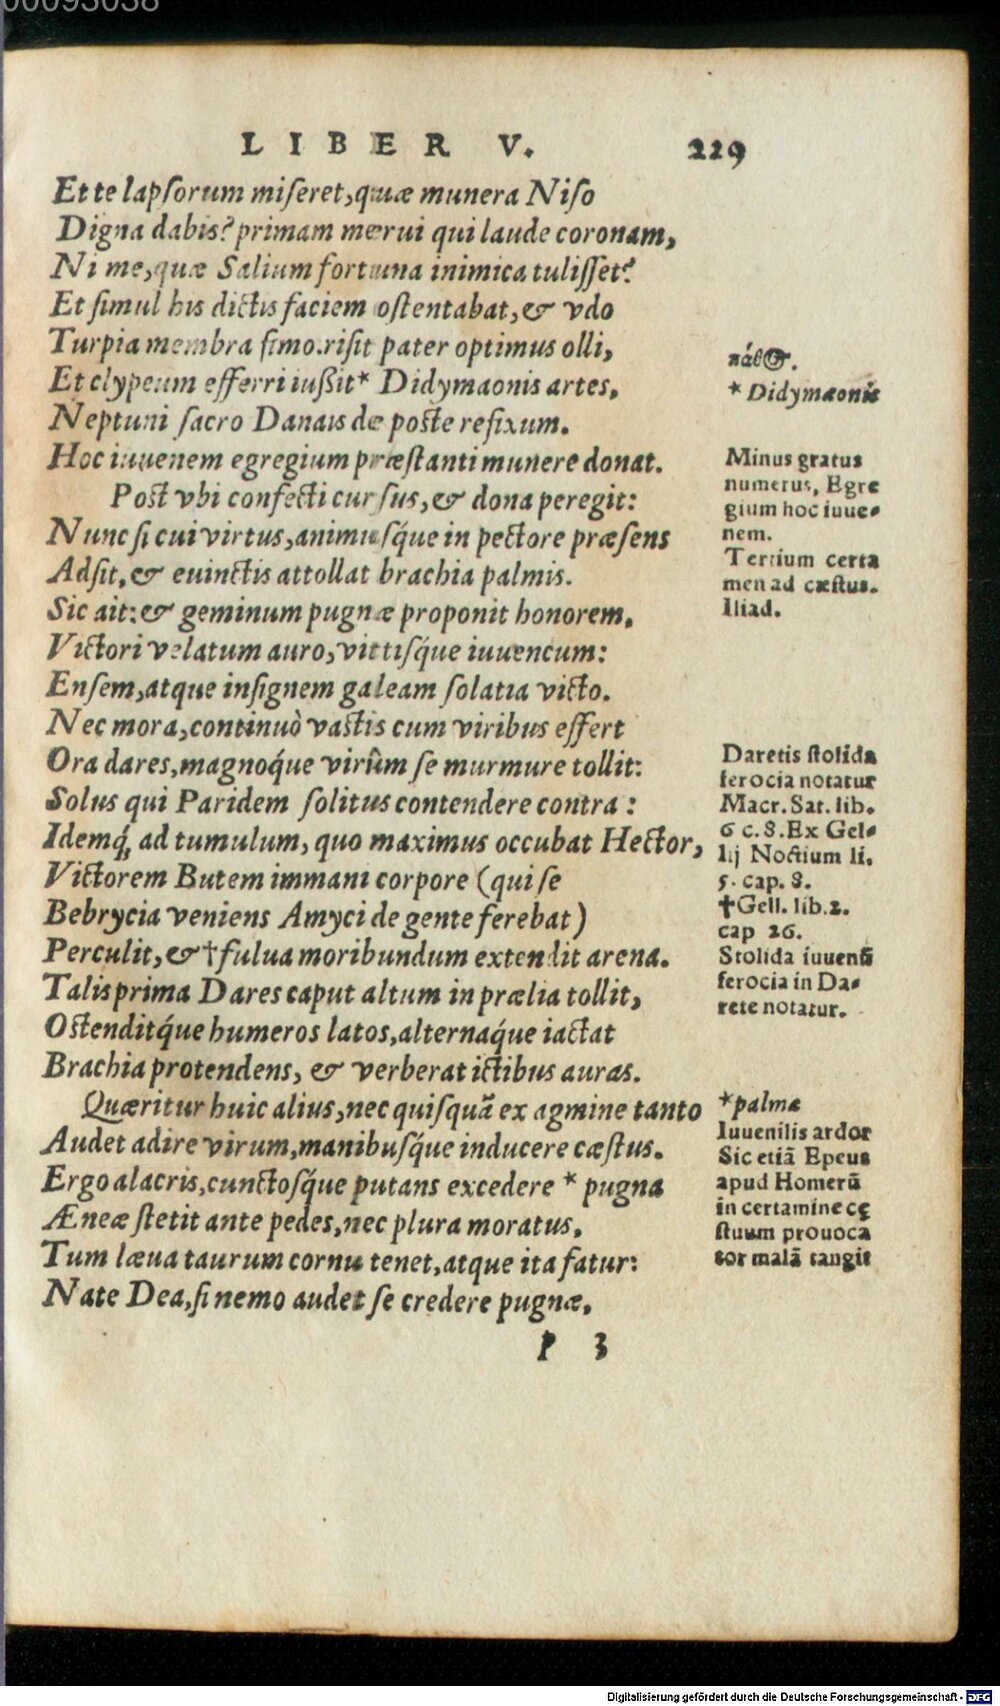 00093038
LIBER V. 229
Et te lapſorum miſeret, quæ munera Niſo
Digna dabis? primam merui qui laude coronam,
Ni me, quæ Salium fortuna inimica tuliſſet?
Et ſimul his dictis faciem oſtentabat, & vdo
Turpia membra fimo. riſit pater optimus olli,
Et clypeum efferri iußit * Didymaonis artes,
Neptuni ſacro Danais de poſte refixum.
Hoc iuuenem egregium præſtanti munere donat.
Poſt vbi confecti curſus, & dona peregit:
Nunc ſi cui virtus, animuſq́ue in pectore præſens
Adſit, & euinctis attollat brachia palmis.
Sic ait: & geminum pugnæ proponit honorem,
Victori velatum auro, vittiſq́ue iuuencum:
Enſem, atque inſignem galeam ſolatia victo.
Nec mora, continuò vaſtis cum viribus effert
Ora dares, magnoq́ue virûm ſe murmure tollit:
Solus qui Paridem ſolitus contendere contra:
Idemq́; ad tumulum, quo maximus occubat Hector,
Victorem Butem immani corpore (qui ſe
Bebrycia veniens Amyci de gente ferebat)
Perculit, & † fulua moribundum extendit arena.
Talis prima Dares caput altum in prælia tollit,
Oſtenditq́ue humeros latos, alternaq́ue iactat
Brachia protendens, & verberat ictibus auras.
Quæritur huic alius, nec quiſquã ex agmine tanto
Audet adire virum, manibuſq́ue inducere cæſtus.
Ergo alacris, cunctoſq́ue putans excedere * pugna
Æneæ ſtetit ante pedes, nec plura moratus,
Tum læua taurum cornu tenet, atque ita fatur:
Nate Dea, ſi nemo audet ſe credere pugnæ,
P 3
* Didymæonis
Minus gratus
numerus, Egre
gium hoc iuue-
nem.
Tertium certa
men ad cæſtus.
Iliad.
Daretis ſtolida
ferocia notatur
Macr. Sat. lib.
6 c. 8. Ex Gel-
lij Noctium li.
5. cap. 8.
† Gell. lib. 2.
cap 26.
Stolida iuuenũ
ferocia in Da-
rete notatur.
* palmæ
Iuuenilis ardor
Sic etiã Epeus
apud Homerũ
in certamine cę
ſtuum prouoca
tor malã tangit
Digitalisierung gefördert durch die Deutsche Forschungsgemeinschaft - DFG